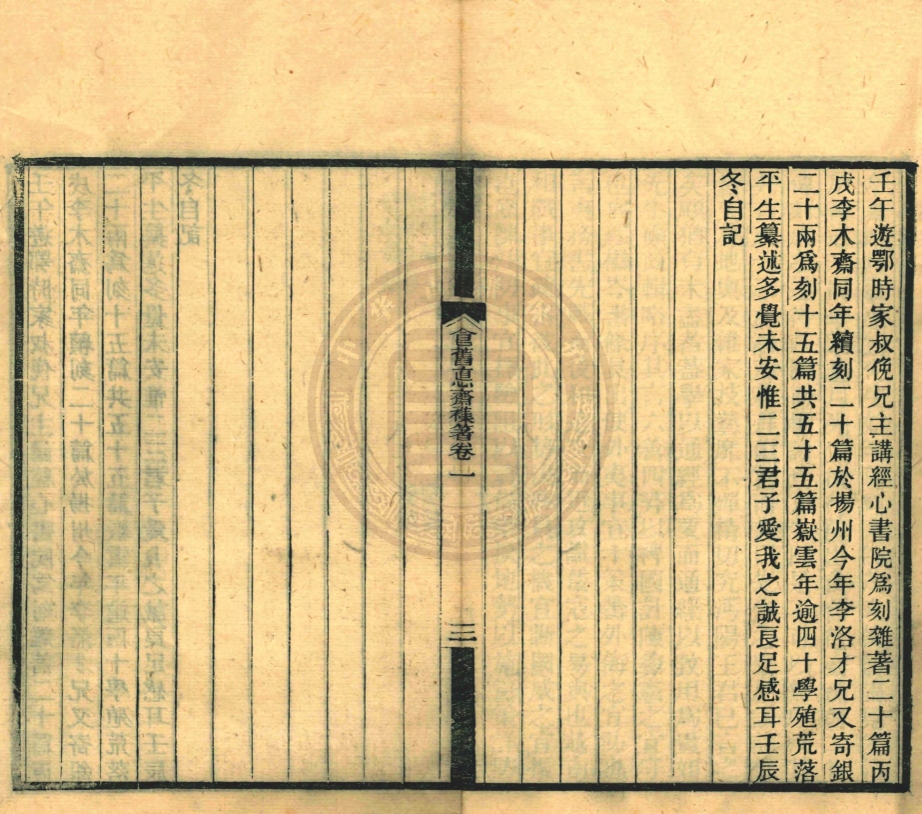 壬午遊鄂時家叔俛兄主講經心書院爲刻雜著二十篇丙
戌李木齋同年續刻二十篇於揚州今年李洛才兄又寄銀
二十兩爲刻十五篇共五十五篇嶽雲年逾四十學殖荒落
平生纂述多覺未安惟二三君子愛我之誠良足感耳壬辰
冬自記
食舊悳齋襍箸卷一
三